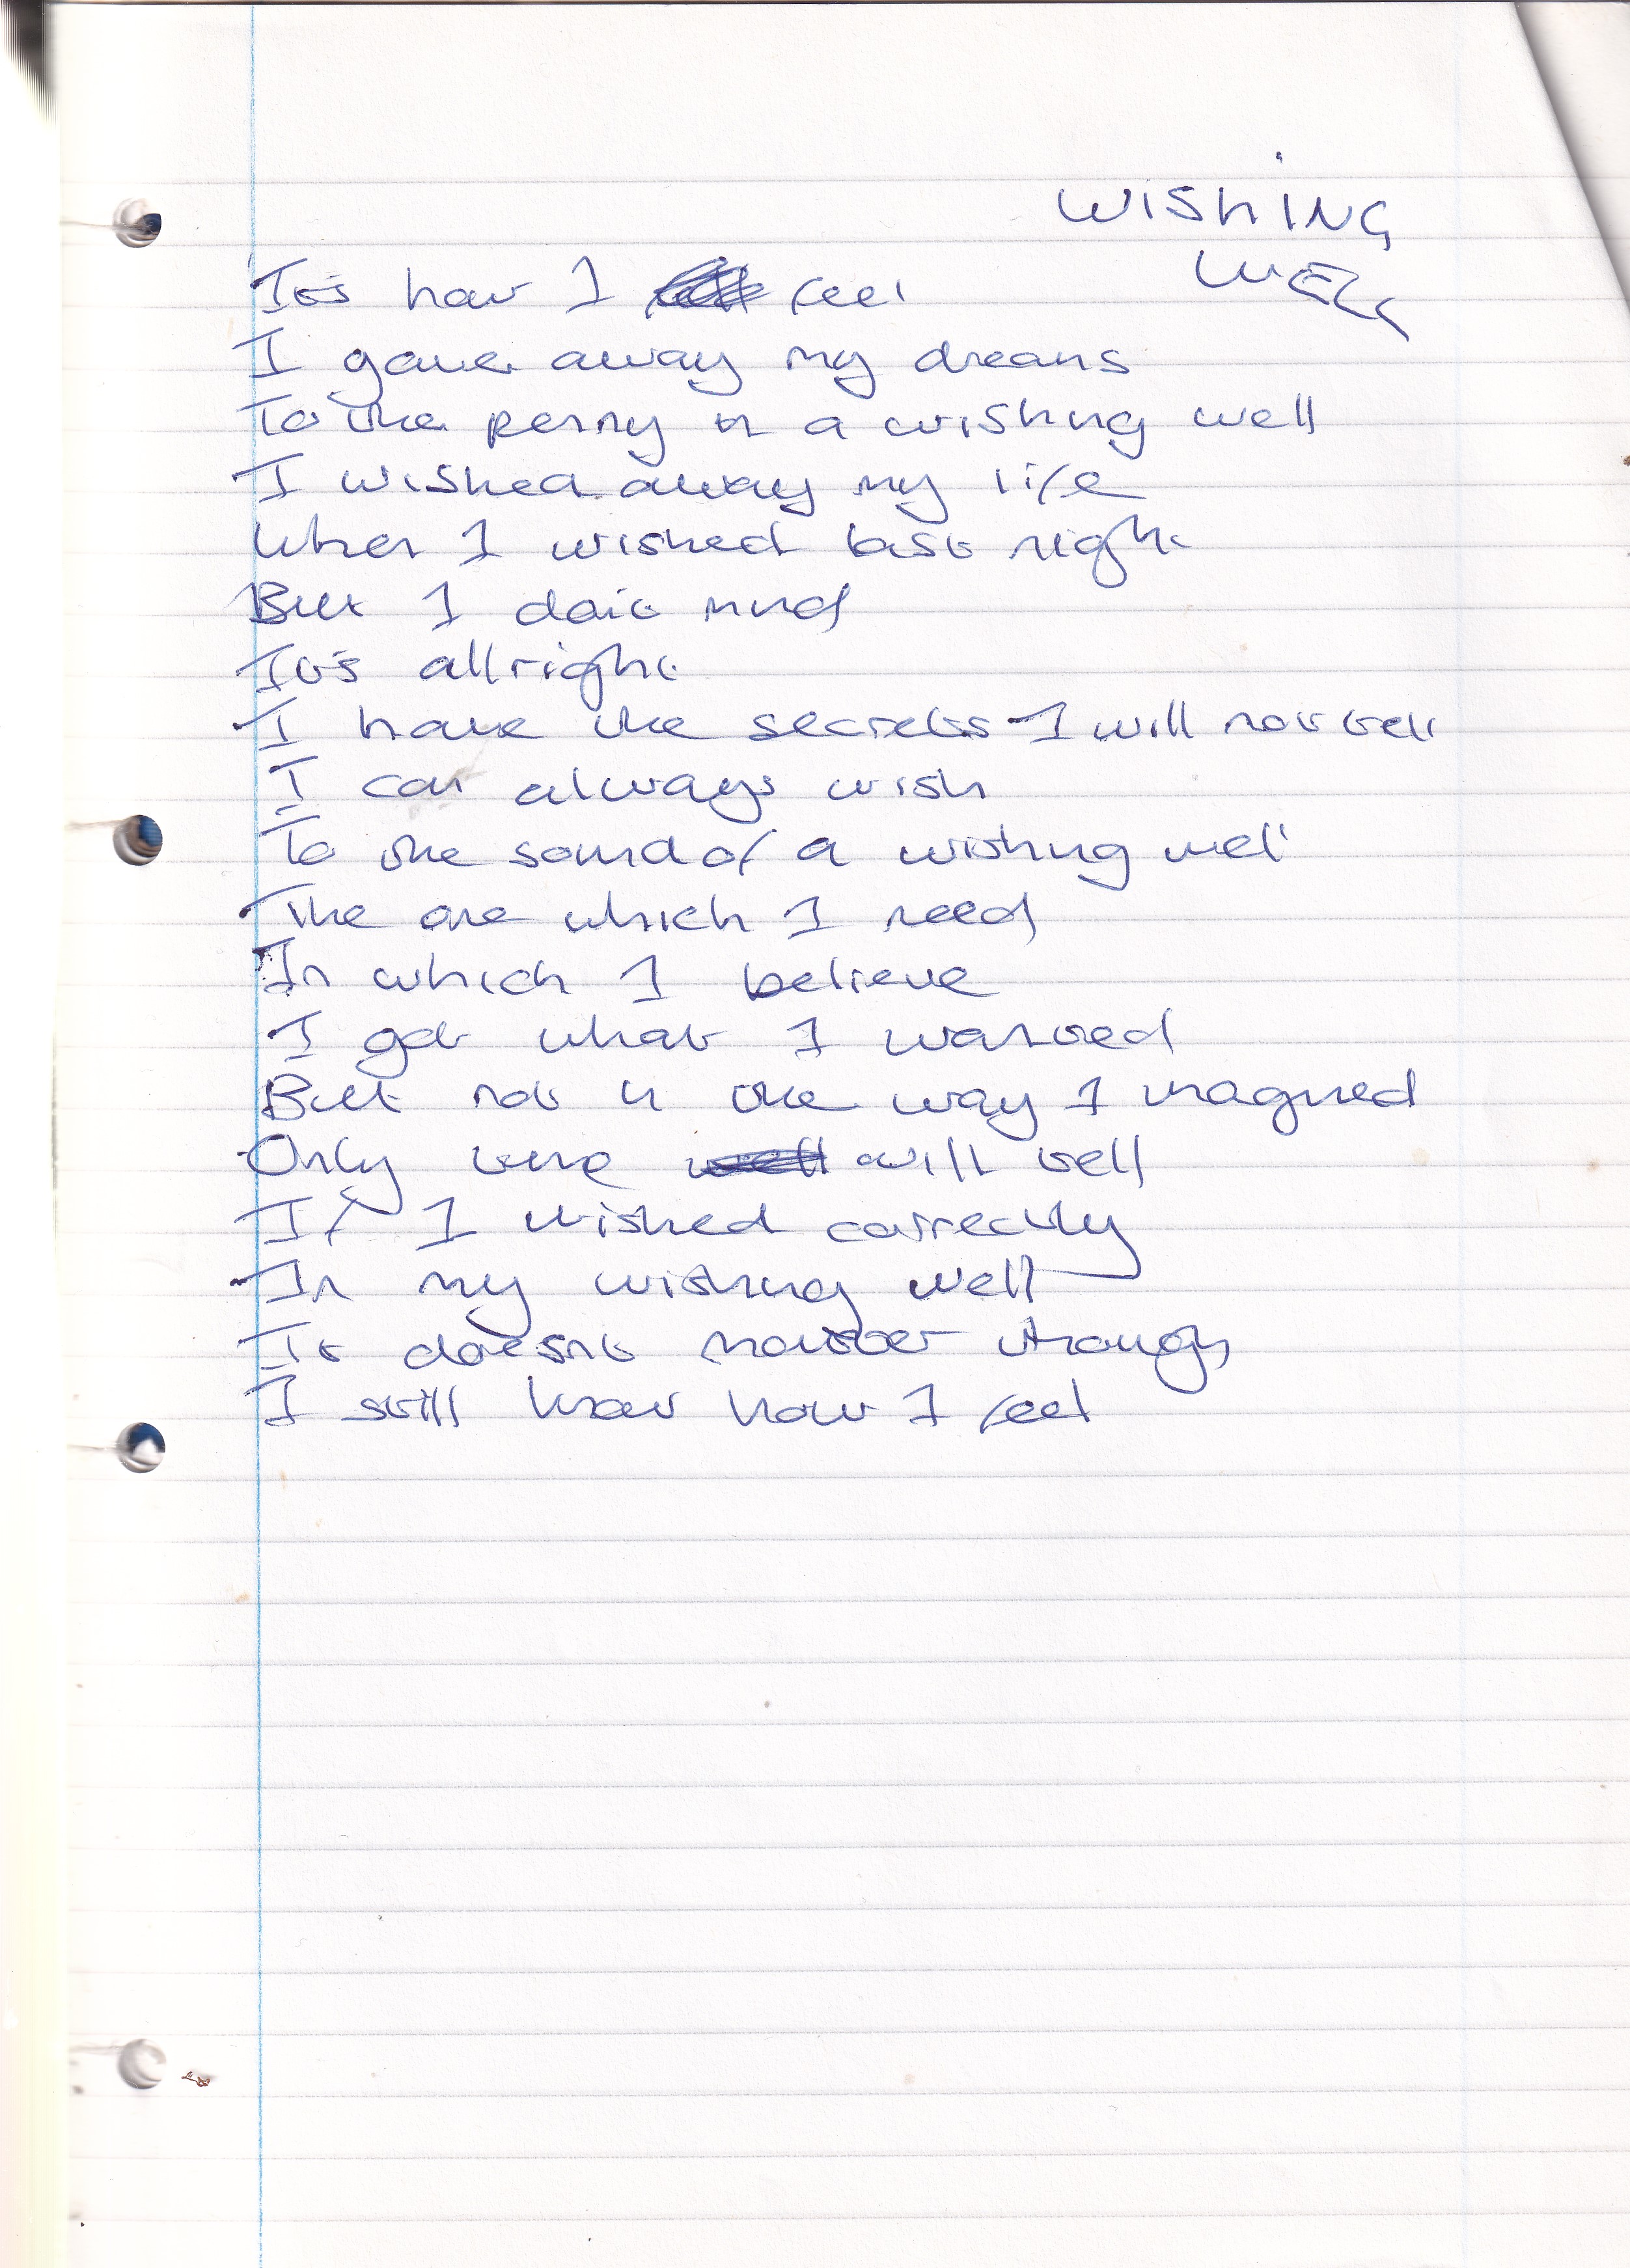 WISHING
WELL
It's how I feel
I gave away my dreams
To the penny in a wishing well
I wished away my life
When I wished last night
But I don't mind
It's allright
I have the secrets I will not tell
I can always wish
To the sound of a wishing well
The one which I need
In which I believe
I got what I wanted
But not in the way I imagined
Only time will tell
If I wished correctly
In my wishing well
It doesnt matter though
I still know how I feel